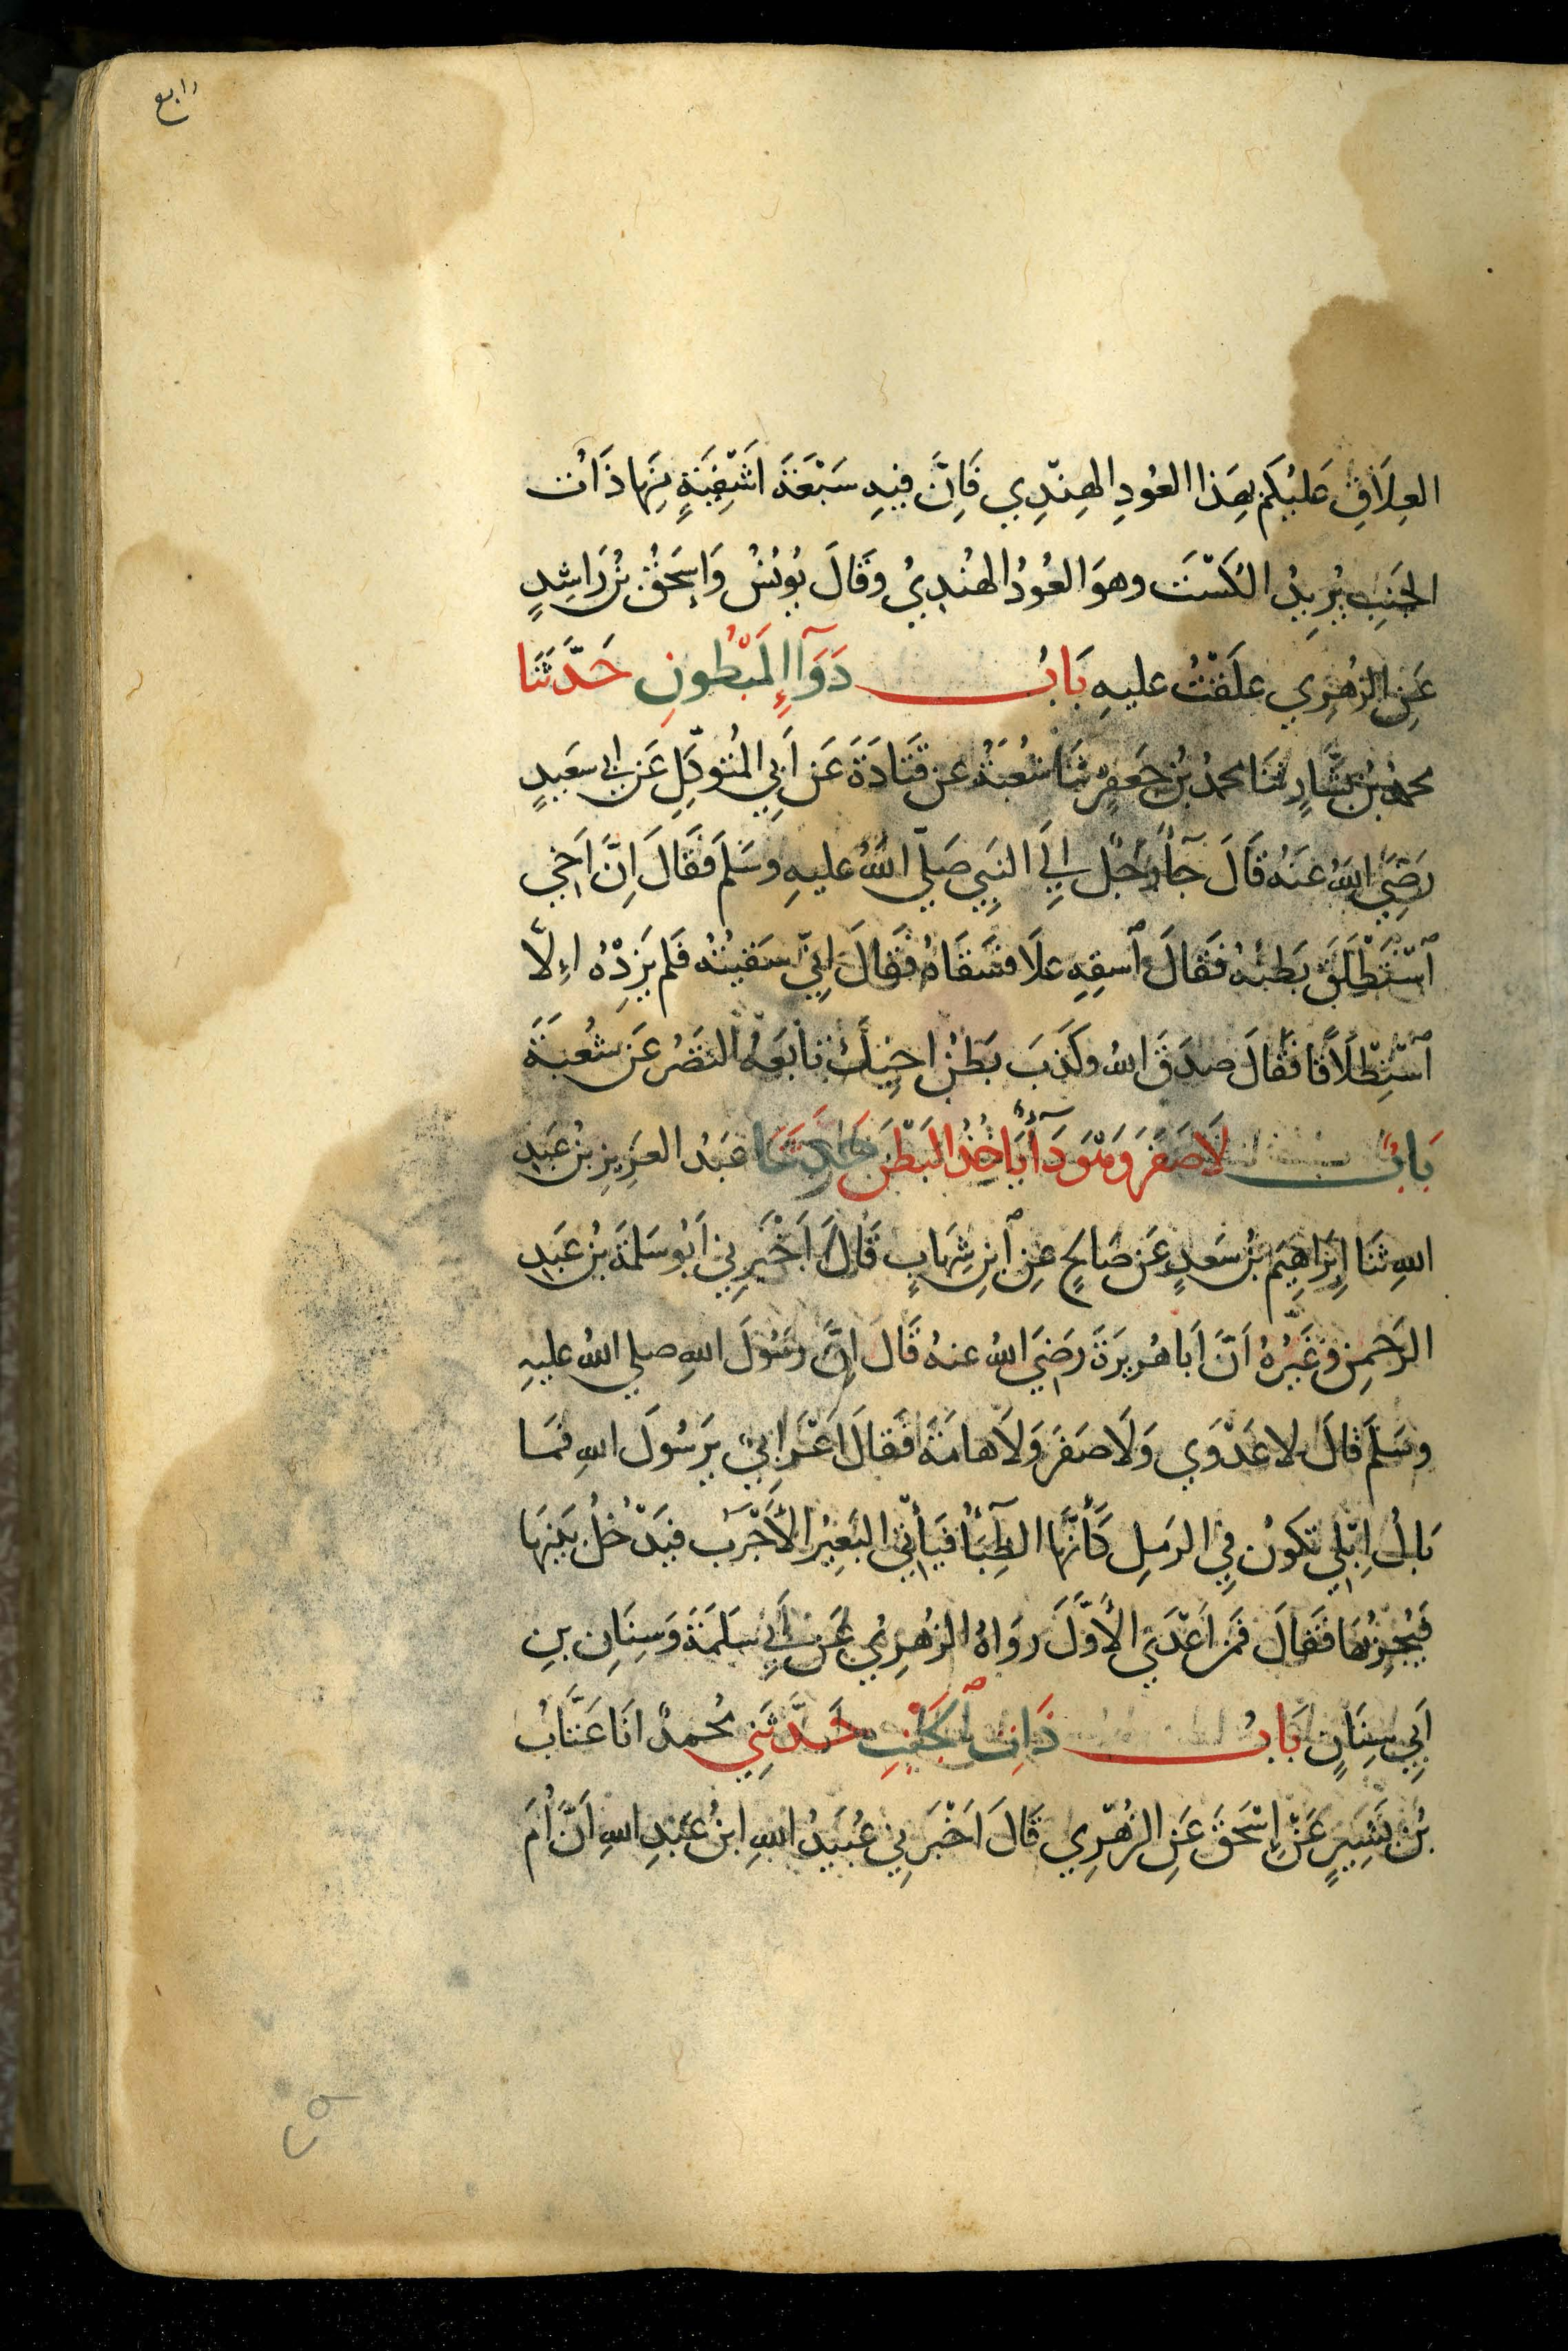 رابع
العِلَاقِ عَلَيْكُم بِهَذا العُودِ الهِنْدِي فَاِنَّ فيهِ سَبْعَةَ اَشْفِيَةٍ مِنْهَا ذَاتُ
الجَنبِ يُرِيدُ الكُسْتَ وهوَ العُودُ الهُندِيُ وقَالَ يُونُسُ وَاِسحَقُ بْنُ رَاشِدٍ
عَنِ الزُهرِي عَلَقْتُ عليهِ بَابُ دَوَآءِ المَبْطُونِ حَدَّثَنَا
محمدُ بْنُ بَشَّارٍ ثنَا محمدُ بْنُ جَعفَرٍ ثنَا شُعْبَةُ عن قَتَادَةَ عَن اَبِي المُتَوكِّلِ عَن ابي سَعِيدٍ
رَضِيَ اللهُ عَنهُ قَالَ جَآءَ رَجُلٌ اِلَى النَبِي صَلَّى اللهُ عليهِ وسَلَمَ فقَالَ اِنَّ اَخِي
ٱسْتَطْلَقَ بَطنُهُ فقَالَ ٱسقِهِ عسَلاً فَسَقَاهُ فقَالَ اِنّي سَقَيتُهُ فَلَم يَزِدْهُ اِلَّا
ٱسْتِطْلَاقًا فقَالَ صدَقَ اللهُ وكَذَبَ بَطنُ اخِيكَ تابَعَهُ النَضْرُ عَن شُعبَةَ
بَابُ لَا صَفَرَ وَهْوَ دَآءٌ يَاخُذُ البَطْنَ حَدَّثَنَا عَبدُ العَزِيزِ بْنُ عَبدِ
اللهِ ثنَا اِبرَاهِيمُ بْنُ سَعدٍ عَن صَالحٍ عنِ ٱبنِ شِهَابٍ قَالَ اَخْبَرَنِي اَبُو سَلَمَةَ بْنُ عَبدِ
الرَحمنِ وغَيْرُهُ اَنَّ اَبَا هُرَيرَةَ رَضِيَ اللهُ عنهُ قَالَ اِنَّ رسُولَ اللهِ صلي اللهُ عليهِ
وسَلَمَ قَالَ لا عَدْوَي وَلَا صَفَرَ وَلَا هامَةَ فقَالَ اَعْرَابِيٌ يَرَسُولَ اللهِ فمَا
بَالُ اِبِلي تَكُونُ فِي الرَملِ كَأَنَّهَا الظِبَآءُ فَيَأْتِي البَعِيرُ الأَجْرَبُ فَيَدْخُلُ بَينَهَا
فَيُجْرِبُهَا فقَالَ فمَن اَعْدَي الأَوَّلَ روَاهُ الزُهرِيُ عَن اَبِي سَلَمَةَ وَسِنَانِ بنِ
اَبِي سِنَانٍ بَابُ ذَاتِ ٱلجَنْبِ حَدَّثَنِي مُحمدٌ انَا عَتَّابُ
بْنُ بَشِيرٍ عَنْ اِسْحَقَ عَنِ الزُهْرِي قَالَ اَخْبَرَنِي عُبَيدُ اللهِ ابنُ عَبدِ اللهِ اَنَّ اُمَ